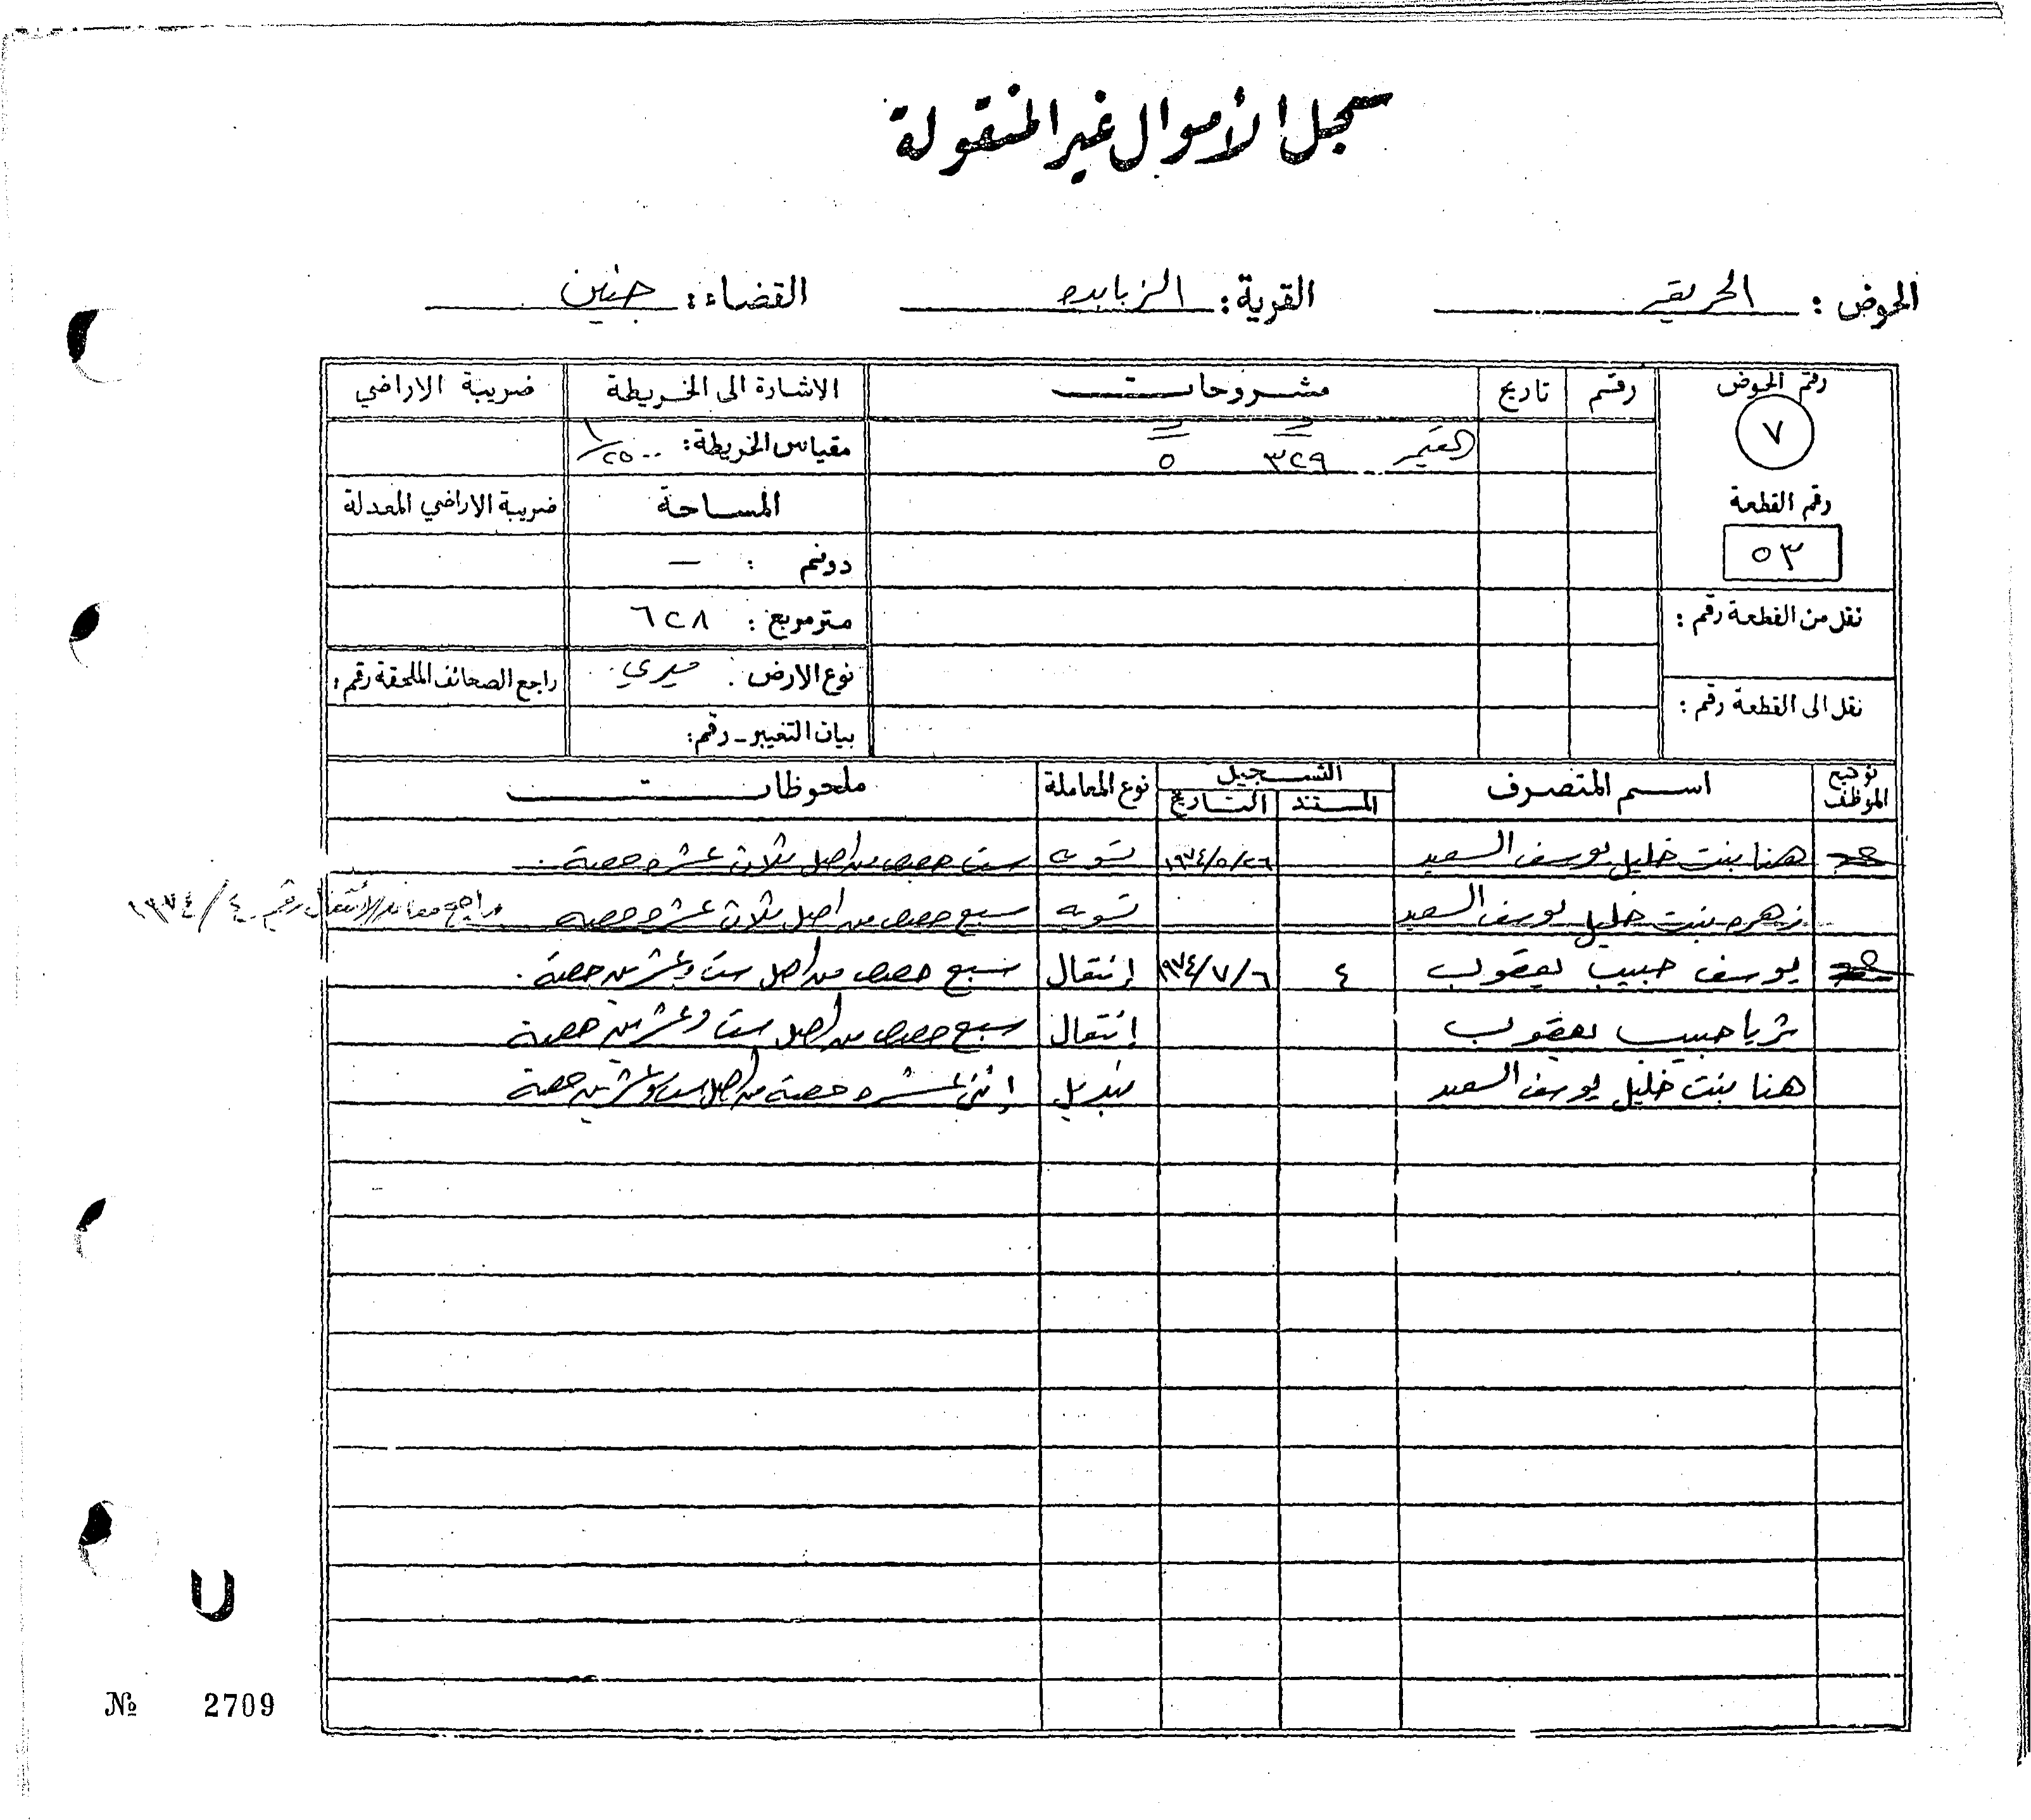 سجل الأموال غير المنقولة
الحوض : الحريقه القرية : الزبابده القضاء : جنين
رقم الحوض رقم تاريخ مشروحات الاشارة الى الخريطة ضريبة الاراضي
٧ د د
٣٢٩ ٥ مقياس الخريطة : ١/٢٥٠٠
رقم القطعة المساحة ضريبة الاراضي المعدلة
٥٣ دونم : —
نقل من القطعة رقم : متر مربع : ٦٢٨
نوع الارض : ميري راجع الصحائف الملحقة رقم :
نقل الى القطعة رقم : بيان التغيير - رقم :
توقيع الموظف اسم المتصرف التسجيل نوع المعاملة ملحوظات
المستند التاريخ
هنا بنت خليل يوسف السعيد ١٩٧٤/٥/٢٦ تسويه ست حصص من اصل ثلاث عشره حصة .
زهره بنت خليل يوسف السعيد تسويه سبع حصص من اصل ثلاث عشره حصه راجع معاملة الانتقال رقم ٤/١٩٧٤
يوسف حبيب يعقوب ٤ ١٩٧٤/٧/٦ إنتقال سبع حصص من اصل ست وعشرين حصة .
ثريا حبيب يعقوب إنتقال سبع حصص من اصل ست وعشرين حصة
هنا بنت خليل يوسف السعيد تبديل إثنتي عشره حصة من اصل ست وعشرين حصة
U
№ 2709